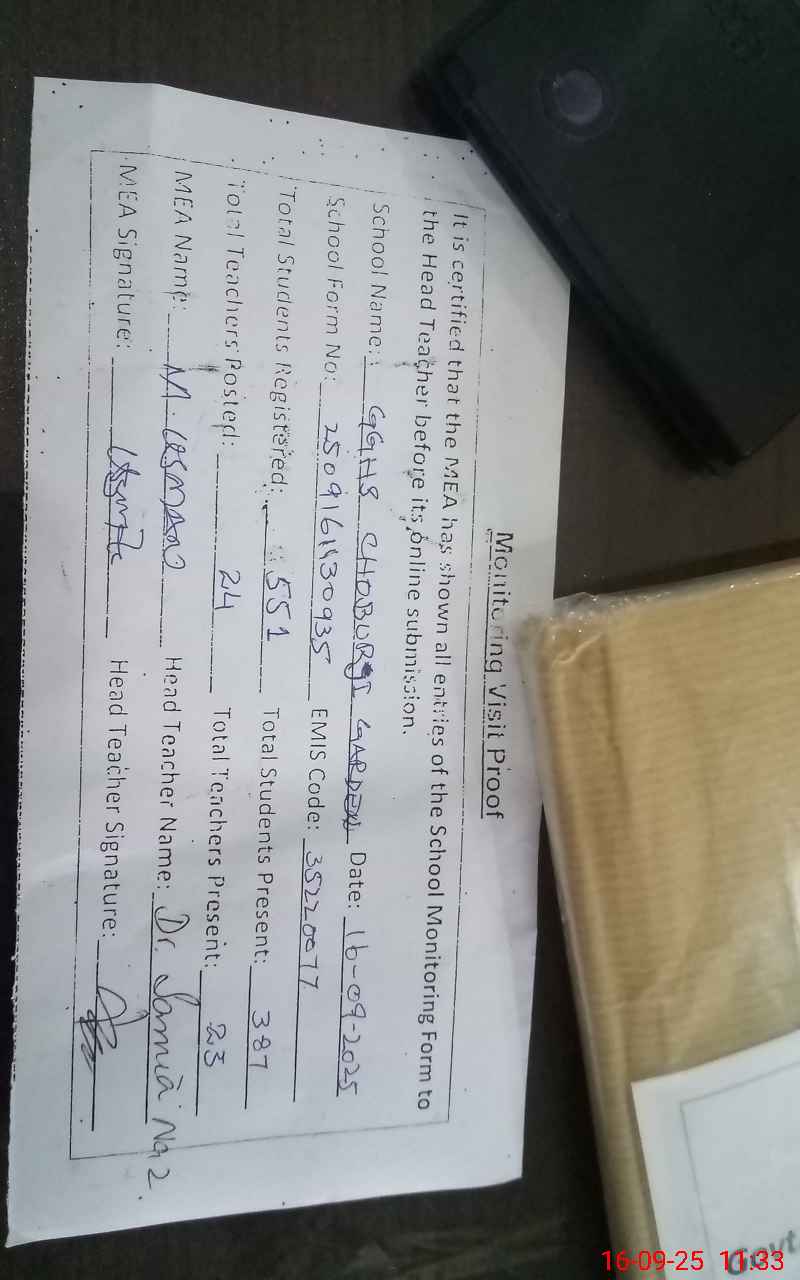 Monitoring Visit Proof
It is certified that the MEA has shown all entries of the School Monitoring Form to
the Head Teacher before its online submission.
School Name: GGHS CHOBURJI GARDEN Date: 16-09-2025
School Form No: 2509161130935 EMIS Code: 35220077
Total Students Registered: 551 Total Students Present: 387
Total Teachers Posted: 24 Total Teachers Present: 23
MEA Name: M. USMAN Head Teacher Name: Dr. Samia Naz.
MEA Signature: Head Teacher Signature:
Govt.
16-09-25 11:33